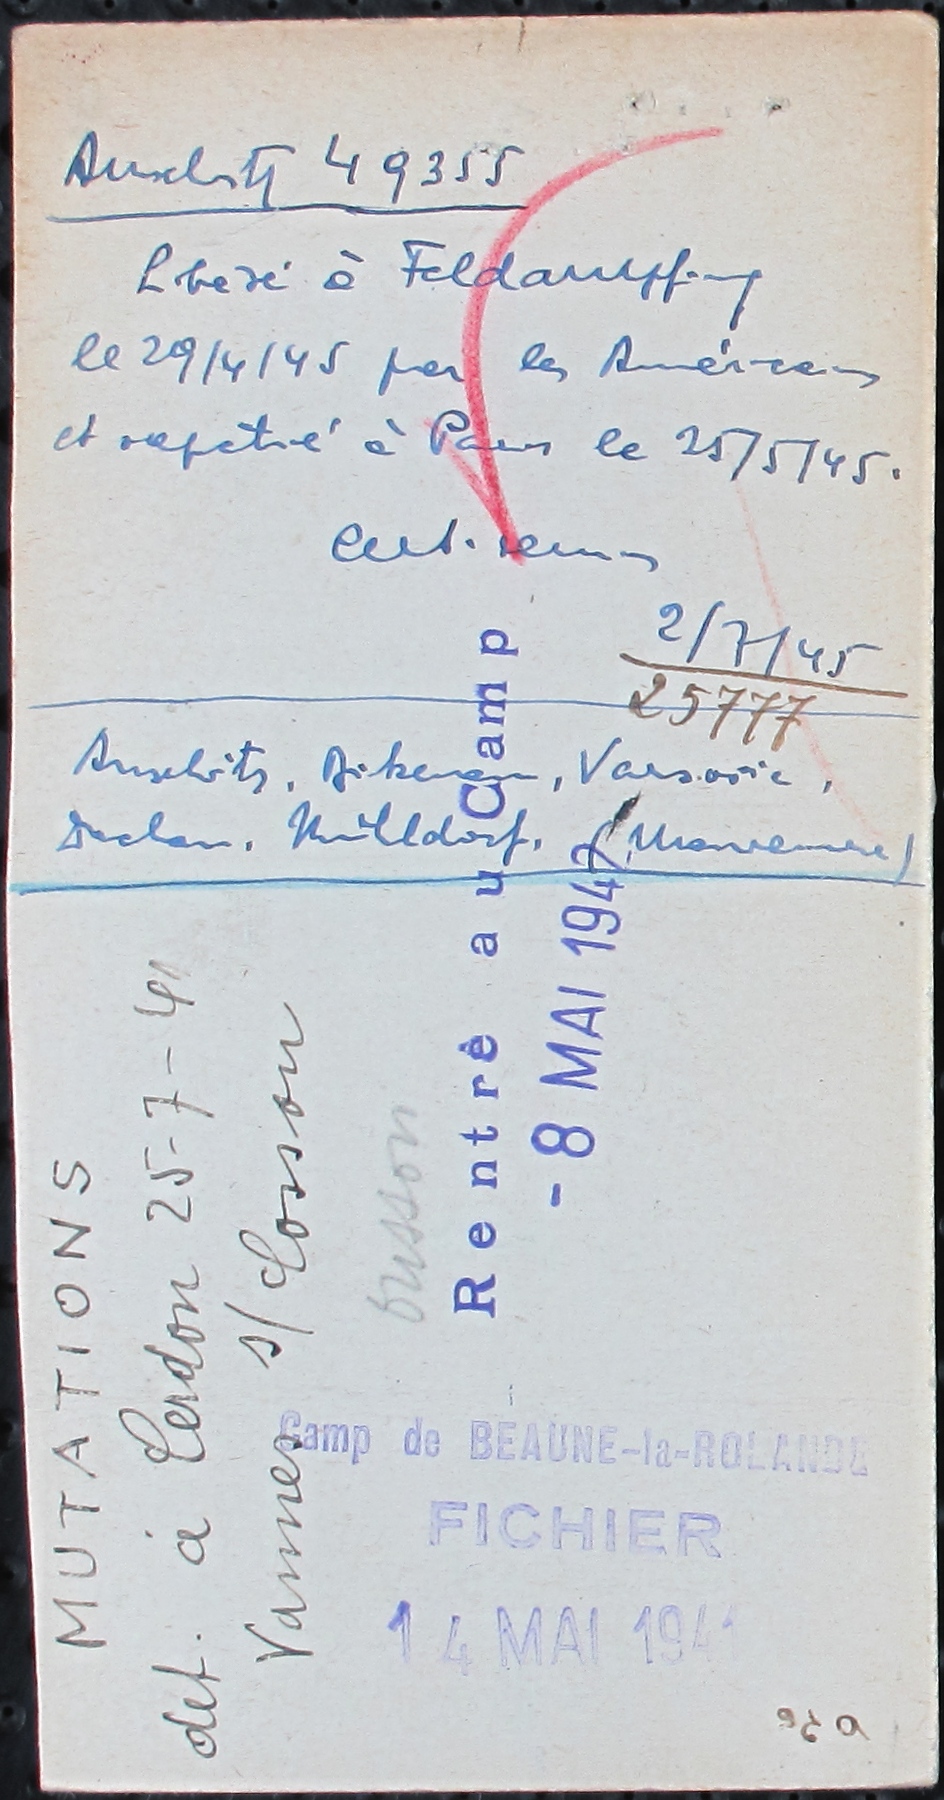 Auschwitz 49355
Libéré à Feldaumpfing
le 29/4/45 par les Américains
et rapatrié à Paris le 25/5/45.
2/7/45
25777
Auschwitz, Birkenau, Varsovie,
Dachau, Mülldorf,
Rentré au Camp
- 8 MAI 1942
MUTATIONS
det. à Cerdon 25-7-41
Vannes s/ Cosson
Camp de BEAUNE-la-ROLANDE
FICHIER
14 MAI 1941